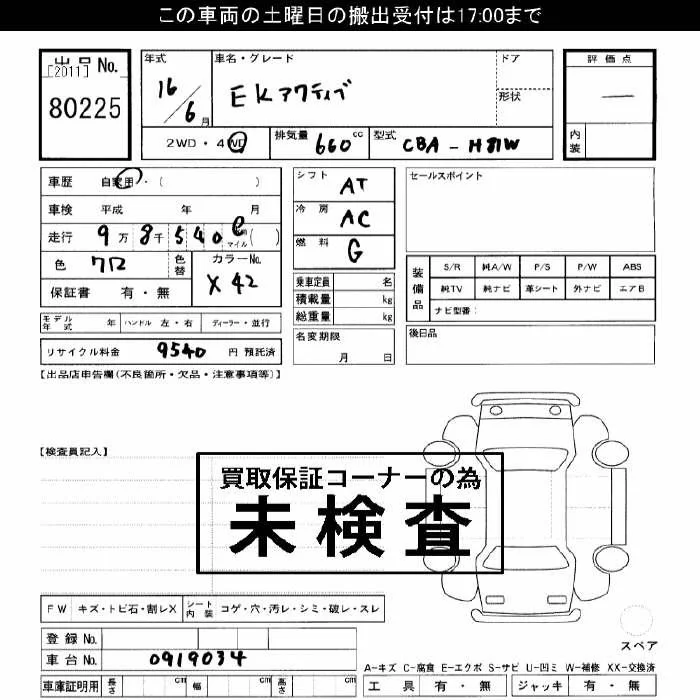 この車両の土曜日の搬出受付は17:00まで
出品 No.
[2011]
80225
年式 16/6月
車名・グレード
EKアクティブ
ドア
形状
評価点
—
内装
2WD・4WD
排気量 660 cc
型式 CBA-H81W
車歴 自家用・( )
シフト AT
セールスポイント
車検 平成 年 月
冷房 AC
走行 9万8千540 マイル( )
燃料 G
色 クロ
色替
カラーNo. X42
保証書 有・無
乗車定員 名
積載量 kg
総重量 kg
装備品
S/R 純A/W P/S P/W ABS
純TV 純ナビ 革シート 外ナビ エアB
ナビ型番:
モデル年式 年 ハンドル 左・右 ディーラー・並行
名変期限 月 日
後日品
リサイクル料金 9540 円 預託済
【出品店申告欄(不良箇所・欠品・注意事項等)】
【検査員記入】
買取保証コーナーの為
未検査
FW キズ・トビ石・割レX
シート内装 コゲ・穴・汚レ・シミ・破レ・スレ
登録 No.
車台 No. 0919034
車庫証明用 長さ cm 幅 cm 高さ cm
スペア
A-キズ C-腐食 E-エクボ S-サビ U-凹ミ W-補修 XX-交換済
工具 有・無 ジャッキ 有・無